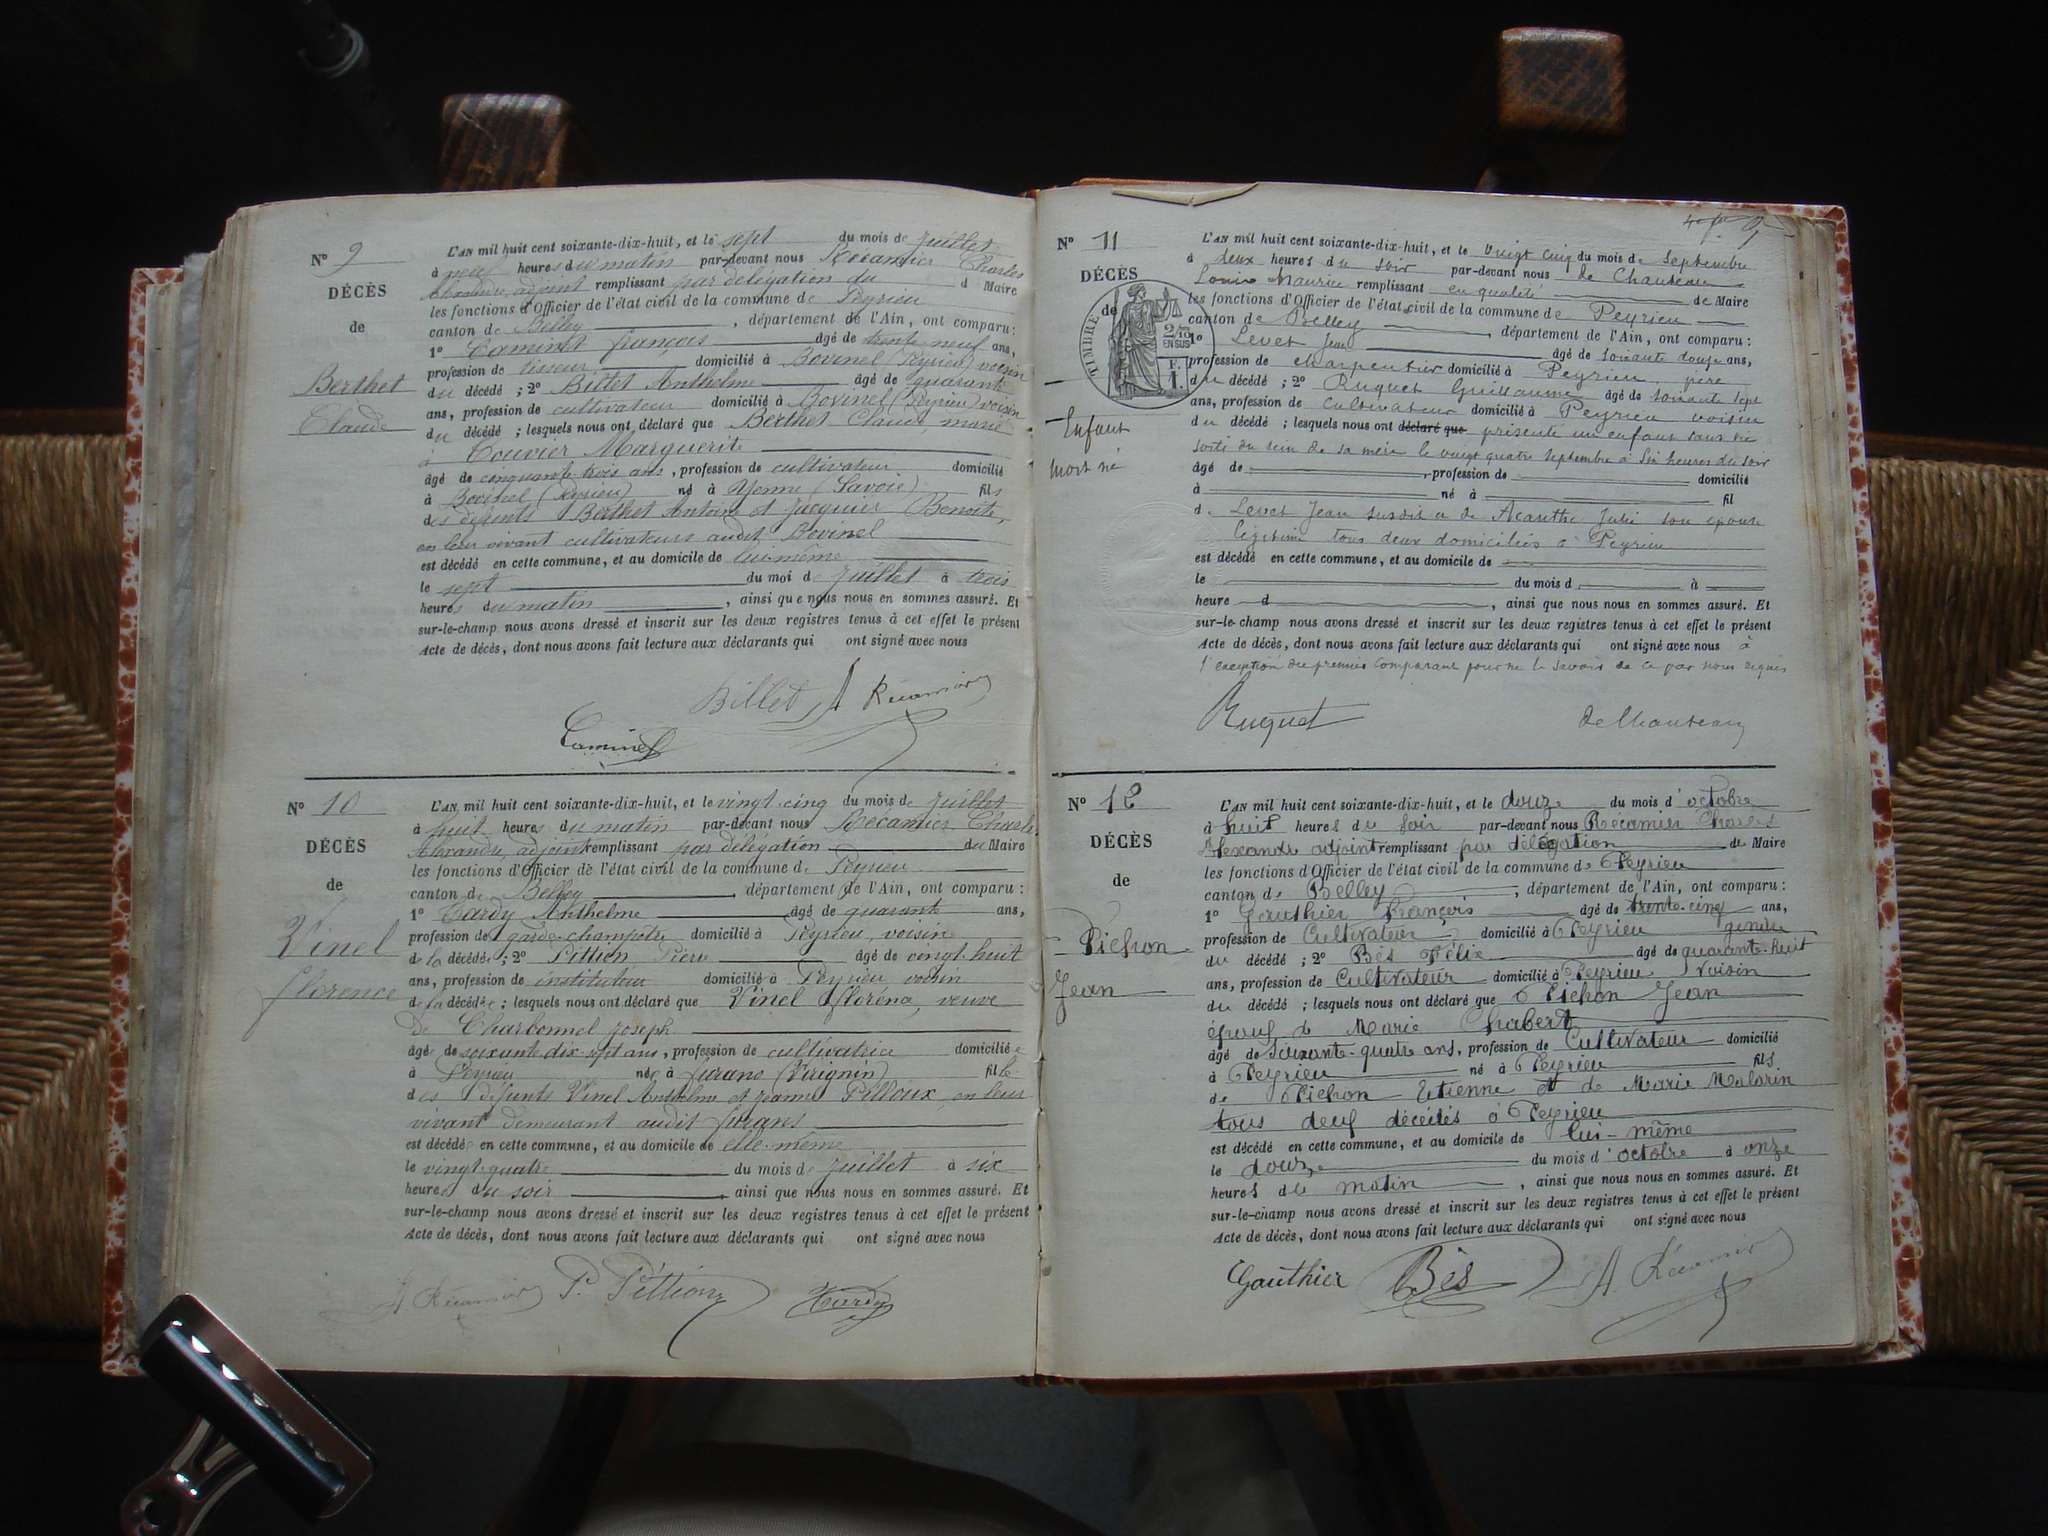 Nº 9
DÉCÈS
de
Berthet
Claude
L'AN mil huit cent soixante-dix-huit, et le sept du mois de juillet
à neuf heures du matin par-devant nous Récamier Charles
adjoint remplissant par délégation du d Maire
les fonctions d'Officier de l'état civil de la commune de Peyrieu
canton de Belley, département de l'Ain, ont comparu :
1º Caminet françois âgé de trente neuf ans,
profession de tisseur domicilié à Bovinel (Peyrieu) voisin
du décédé ; 2º Billet Anthelme âgé de quarante
ans, profession de cultivateur domicilié à Bovinel (Peyrieu) voisin
du décédé ; lesquels nous ont déclaré que Berthet Claude, marié
à Couvier Marguerit
âgé de cinquante-trois ans, profession de cultivateur domicilié
à Bovinel (Peyrieu) né à Yenne (Savoie) fils
des défunts Berthet Antoine et Jacquier Benoîte,
en leur vivant cultivateurs audit Bovinel
est décédé en cette commune, et au domicile de lui-même
le sept du moi de juillet à trois
heures du matin, ainsi que nous nous en sommes assuré. Et
sur-le-champ nous avons dressé et inscrit sur les deux registres tenus à cet effet le présent
Acte de décès, dont nous avons fait lecture aux déclarants qui ont signé avec nous
Billet A Récamier
Caminet
Nº 10
DÉCÈS
de
Vinel
florence
L'AN mil huit cent soixante-dix-huit, et le vingt-cinq du mois de juillet
à huit heures du matin par-devant nous Récamier Charles
adjoint remplissant par délégation du Maire
les fonctions d'Officier de l'état civil de la commune de Peyrieu
canton de Belley, département de l'Ain, ont comparu :
1º Cardy Anthelme âgé de quarante ans,
profession de garde-champêtre domicilié à Peyrieu, voisin
de la décédée ; 2º Pittion Pierre âgé de vingt-huit
ans, profession de instituteur domicilié à Peyrieu voisin
de la décédée ; lesquels nous ont déclaré que Vinel floréna, veuve
de Charbonnel Joseph
âgée de soixante dix sept ans, profession de cultivatrice domiciliée
à Peyrieu née à furans (Virignin) fille
des défunts Vinel Anthelme et Jeanne Pilloux, en leur
vivant demeurant audit furans
est décédée en cette commune, et au domicile de elle-même
le vingt-quatre du mois de juillet à six
heures du soir, ainsi que nous nous en sommes assuré. Et
sur-le-champ nous avons dressé et inscrit sur les deux registres tenus à cet effet le présent
Acte de décès, dont nous avons fait lecture aux déclarants qui ont signé avec nous
A Récamier P. Pittion Cardy
Nº 11
DÉCÈS
de
TIMBRE
2/10
EN SUS
F.
1.
Enfant
mort né
L'AN mil huit cent soixante-dix-huit, et le vingt cinq du mois de Septembre
à deux heures du soir par-devant nous de Chauteau
Louis Maurice remplissant en qualité de Maire
les fonctions d'Officier de l'état civil de la commune de Peyrieu
canton de Belley, département de l'Ain, ont comparu :
1º Levet Jean âgé de soixante douze ans,
profession de charpentier domicilié à Peyrieu père
du décédé ; 2º Ruquet Guillaume âgé de soixante sept
ans, profession de cultivateur domicilié à Peyrieu voisin
du décédé ; lesquels nous ont déclaré que présenté un enfant sans vie
sorti du sein de sa mère le vingt quatre septembre à six heures du soir
âgé de, profession de domicilié
à né à fil
de Levet Jean susdit et de Acanthe Julie son épouse
légitime tous deux domiciliés à Peyrieu
est décédé en cette commune, et au domicile de
le du mois d à
heure d, ainsi que nous nous en sommes assuré. Et
sur-le-champ nous avons dressé et inscrit sur les deux registres tenus à cet effet le présent
Acte de décès, dont nous avons fait lecture aux déclarants qui ont signé avec nous à
l'exception du premier comparant pour ne le savoir de ce par nous requis
Ruquet de Chauteau
Nº 12
DÉCÈS
de
Pichon
Jean
L'AN mil huit cent soixante-dix-huit, et le douze du mois d'octobre
à huit heures du soir par-devant nous Récamier Charles
Alexandre adjoint remplissant par délégation de Maire
les fonctions d'Officier de l'état civil de la commune de Peyrieu
canton de Belley, département de l'Ain, ont comparu :
1º Gauthier François âgé de trente-cinq ans,
profession de Cultivateur domicilié à Peyrieu gendre
du décédé ; 2º Bés Félix âgé de quarante-huit
ans, profession de Cultivateur domicilié à Peyrieu voisin
du décédé ; lesquels nous ont déclaré que Pichon Jean
époux de Marie Chabert
âgé de soixante-quatre ans, profession de Cultivateur domicilié
à Peyrieu né à Peyrieu fils
de Pichon Etienne et de Marie Malorin
tous deux décédés à Peyrieu
est décédé en cette commune, et au domicile de lui-même
le douze du mois d'octobre à onze
heures du matin, ainsi que nous nous en sommes assuré. Et
sur-le-champ nous avons dressé et inscrit sur les deux registres tenus à cet effet le présent
Acte de décès, dont nous avons fait lecture aux déclarants qui ont signé avec nous
Gauthier Bés A Récamier